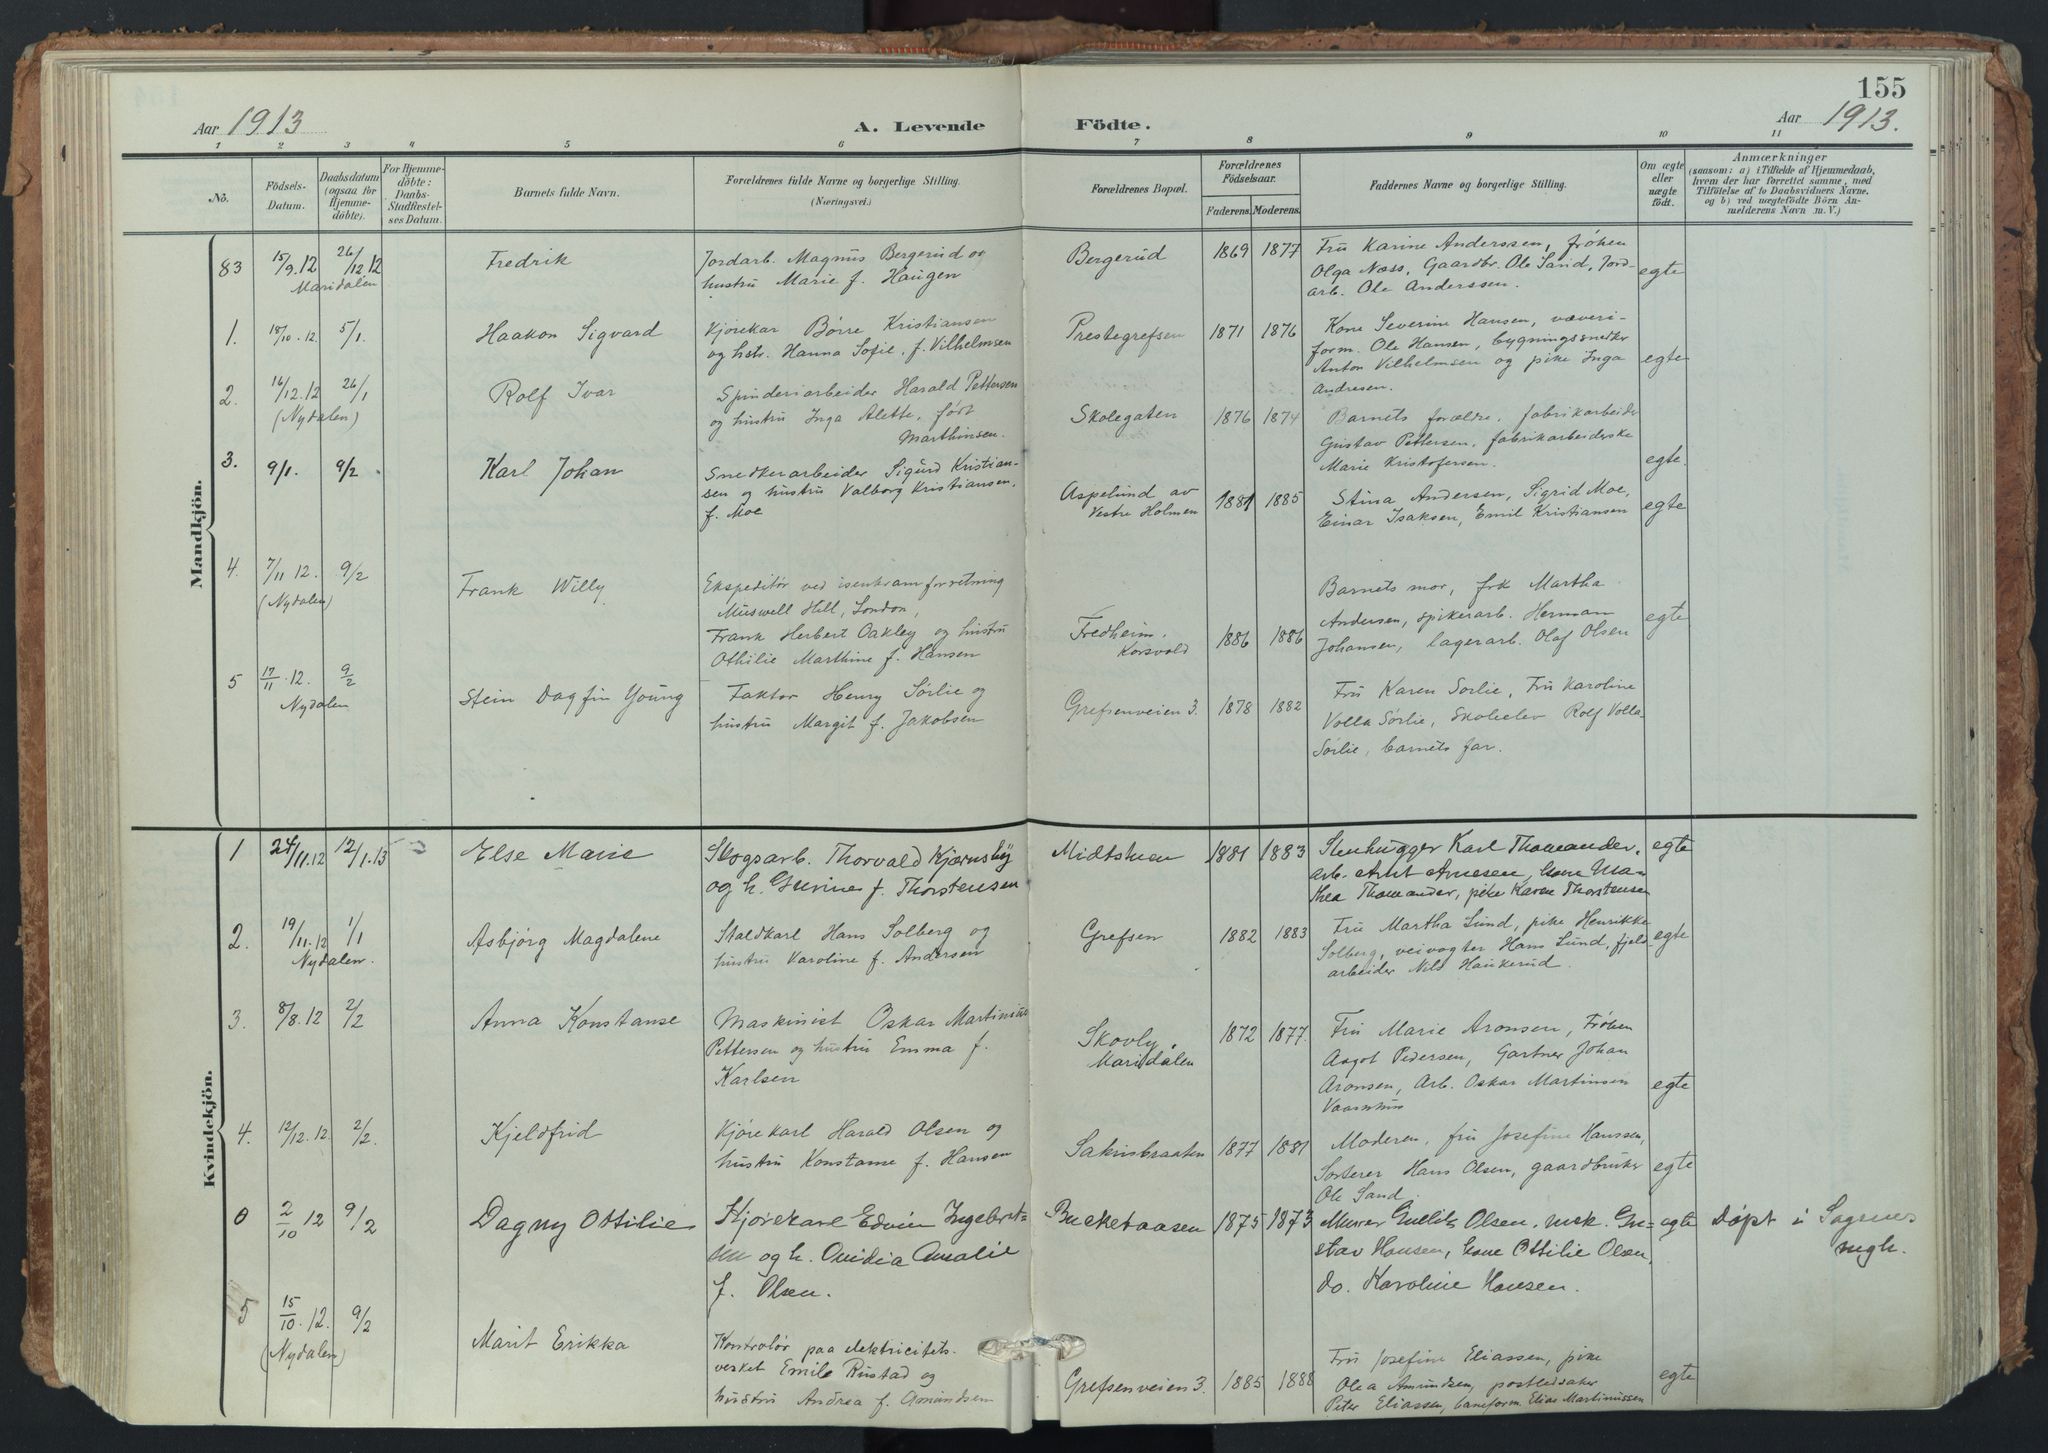 155
Aar 1913
A. Levende Födte.
Aar 1913.
1 2 3 4 5 6 7 8 9 10 11
No.
Födsels-Datum.
Daabsdatum (ogsaa for Hjemme-döbte).
For Hjemme-döbte: Daabs-Stadfæstel-ses Datum.
Barnets fulde Navn.
Forældrenes fulde Navne og borgerlige Stilling.
(Næringsvei.)
Forældrenes Bopæl.
Forældrenes Födselsaar.
Faderens. Moderens.
Faddernes Navne og borgerlige Stilling.
Om ægte eller uægte födt.
Anmærkninger
(saasom: a) i Tilfælde af Hjemmedaab, hvem der har forrettet samme, med Tilföielse af to Daabsvidners Navne, og b) ved uægtefödte Börn An-melderens Navn m. V.)
Mandkjön.
83 15/9.12 26/12.12 Fredrik Jordarb. Magnus Bergerud og Bergerud 1869 1877 Fru Karine Anderssen, frøken
Maridalen hustru Marie f. Haugen Olga Næss, Gaardbr. Ole Sand, Jord-
arb. Ole Anderssen. egte
1. 18/10.12. 5/1. Haakon Sigvard Kjørekar Børre Kristiansen Prestegrefsen 1871 1876 Kone Severine Hansen, væveri-
og hstr. Hanna Sofie, f. Vilhelmsen form. Ole Hansen, bygningssnedker
Anton Vilhelmsen og pike Inga egte
Andresen.
2. 16/12.12 26/1 Rolf Ivar Spinderiarbeider Harald Pettersen
(Nydalen) og hustru Inga Alette, født Skolegaten 1876 1874 Barnets forældre, fabrikarbeider
Marthinsen. Gustav Pettersen, fabrikarbeiderske
Marie Kristofersen. egte.
3. 9/1. 9/2 Karl Johan Snedkerarbeider Sigurd Kristian-
sen og hustru Valborg Kristiansen, Aspelund av 1881 1885 Stina Andersen, Sigrid Moe,
f. Moe Vestre Holmen Einar Isaksen, Emil Kristiansen egte
4. 7/11 12. 9/2 Frank Willy Ekspeditør ved isenkramforretning Barnets mor, frk Martha
(Nydalen) Muswell Hill, London, Andersen, spikerarb. Herman egte
Frank Herbert Oakley og hustru Fredheim. 1886 1886 Johansen, lagerarb. Olaf Olsen
Othilie Marthine f. Hansen Korsvold
5 17/11.12. 9/2 Stein Dagfin Young Faktor Henry Sørlie og Grefsenveien 3. 1878 1882 Fru Karen Sørlie, Fru Karoline
Nydalen hustru Margit f. Jakobsen Volla Sørlie, Skoleelev Rolf Volla-
Sørlie, barnets far.
Kvindekjön.
1 24/11.12 12/1.13 Else Marie Skogsarb. Thorvald Kjærnsby Midtstuen 1881 1883 Stenhugger Karl Thomander, egte
og h. Gurine f. Thorstensen arb. Arnt Arnesen, kone Ma-
thea Thomander, pike Karen Thorstensen
2. 19/11.12 1/1 Asbjørg Magdalene Staldkarl Hans Solberg og Grefsen 1882 1883 Fru Martha Lund, pike Henrikke
Nydalen. hustru Karoline f. Andersen Solberg, veivogter Hans Lund, fjeld- egte
arbeider Nils Haukerud.
3. 8/8.12 2/2 Anna Konstanse Maskinist Oskar Martinius Skovly, 1872 1877. Fru Marie Aronsen, Frøken
Pettersen og hustru Emma f. Maridalen Aagot Pedersen, Gartner Johan
Karlsen Aronsen, Arb. Oskar Martinsen egte
4. 12/12.12. 2/2. Kjeldfrid Kjørekarl Harald Olsen og Sakrisbraaten 1877 1881 Moderen, fru Josefine Hanssen,
hustru Konstanse f. Hansen Sorterer Hans Olsen, gaardbruker egte
Ole Sand.
0 2/10 12 9/2 Dagny Ottilie Kjørekarl Edvin Ingebret- 1875 1873 Murer Olsen, msk. Gu- egte Døpt i Sagenes
sen og h. Ovidia Amalie stav Hansen, kone Ottilie Olsen, mgh.
f. Olsen. do. Karoline Hansen.
5 15/10.12. 9/2 Marit Erikka Kontrolør paa elektricitets-
(Nydalen) verket Emile Rustad og Grefsenveien 3. 1885 1888 Fru Josefine Eliassen, pike
hustru Andrea f. Amundsen Olea Amundsen, egte
Peter Eliassen, baneform. Elias Martinussen